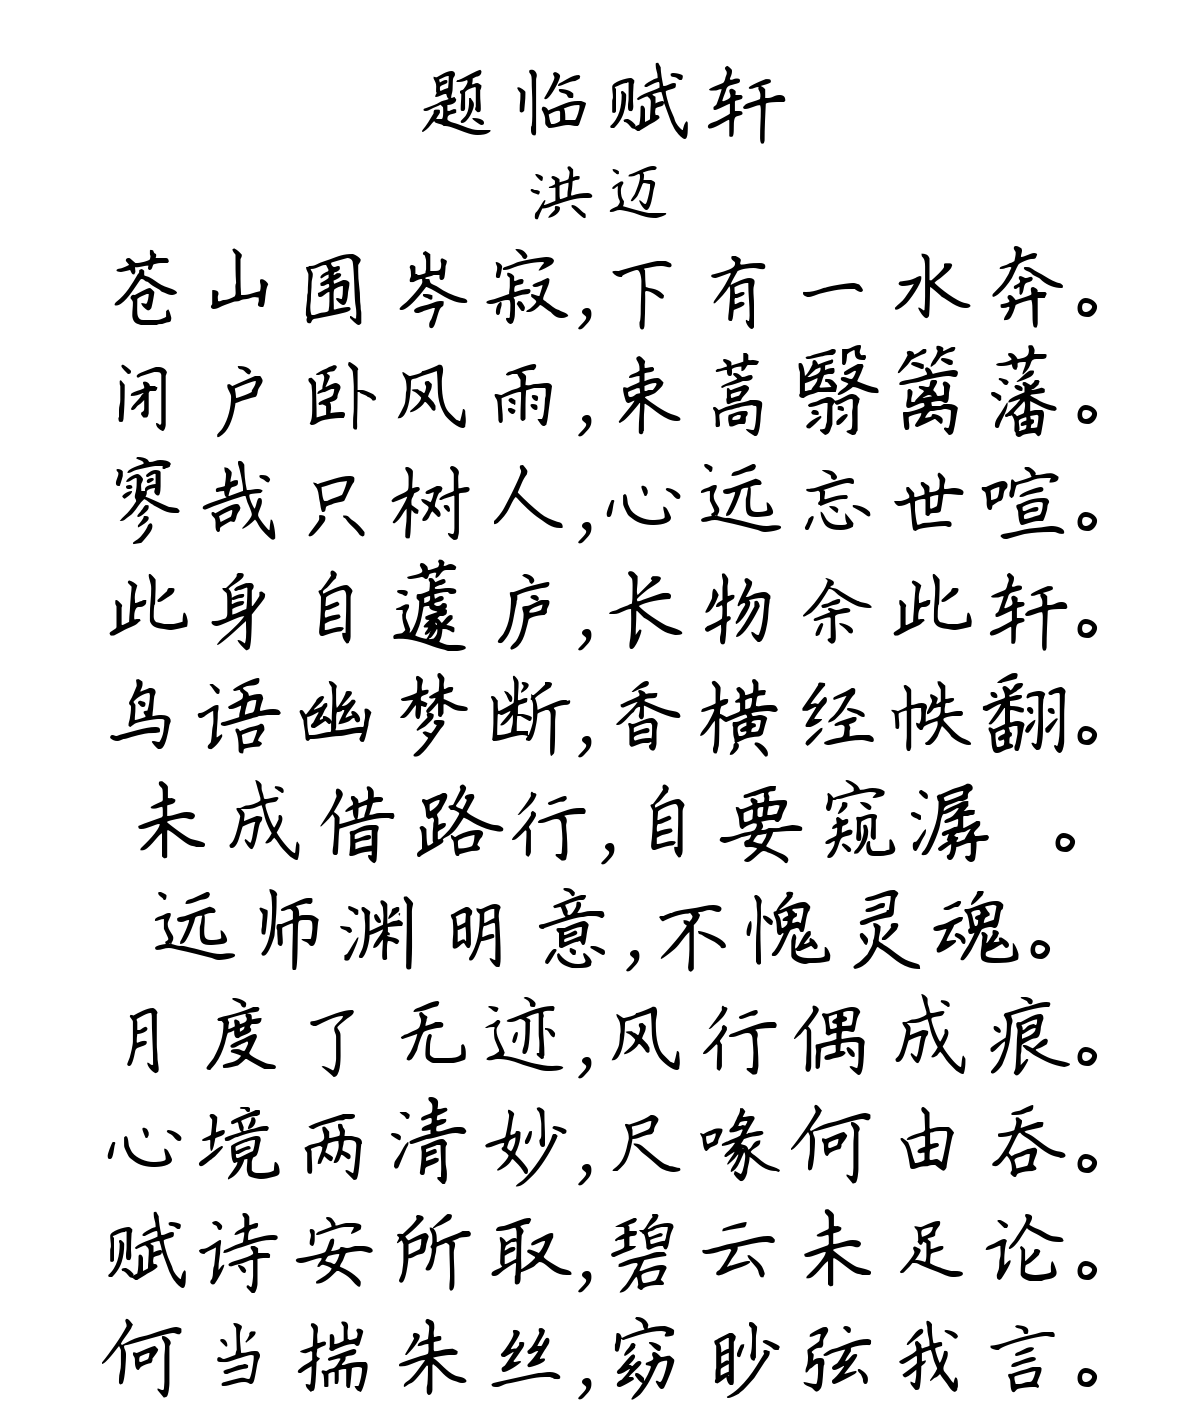 题临赋轩
洪迈
苍山围岑寂,下有一水奔。
闭户卧风雨,束蒿翳篱藩。
寥哉只树人,心远忘世喧。
此身自蘧庐,长物余此轩。
鸟语幽梦断,香横经帙翻。
未成借路行,自要窥潺 。
远师渊明意,不愧灵魂。
月度了无迹,风行偶成痕。
心境两清妙,尺喙何由吞。
赋诗安所取,碧云未足论。
何当揣朱丝,窈眇弦我言。